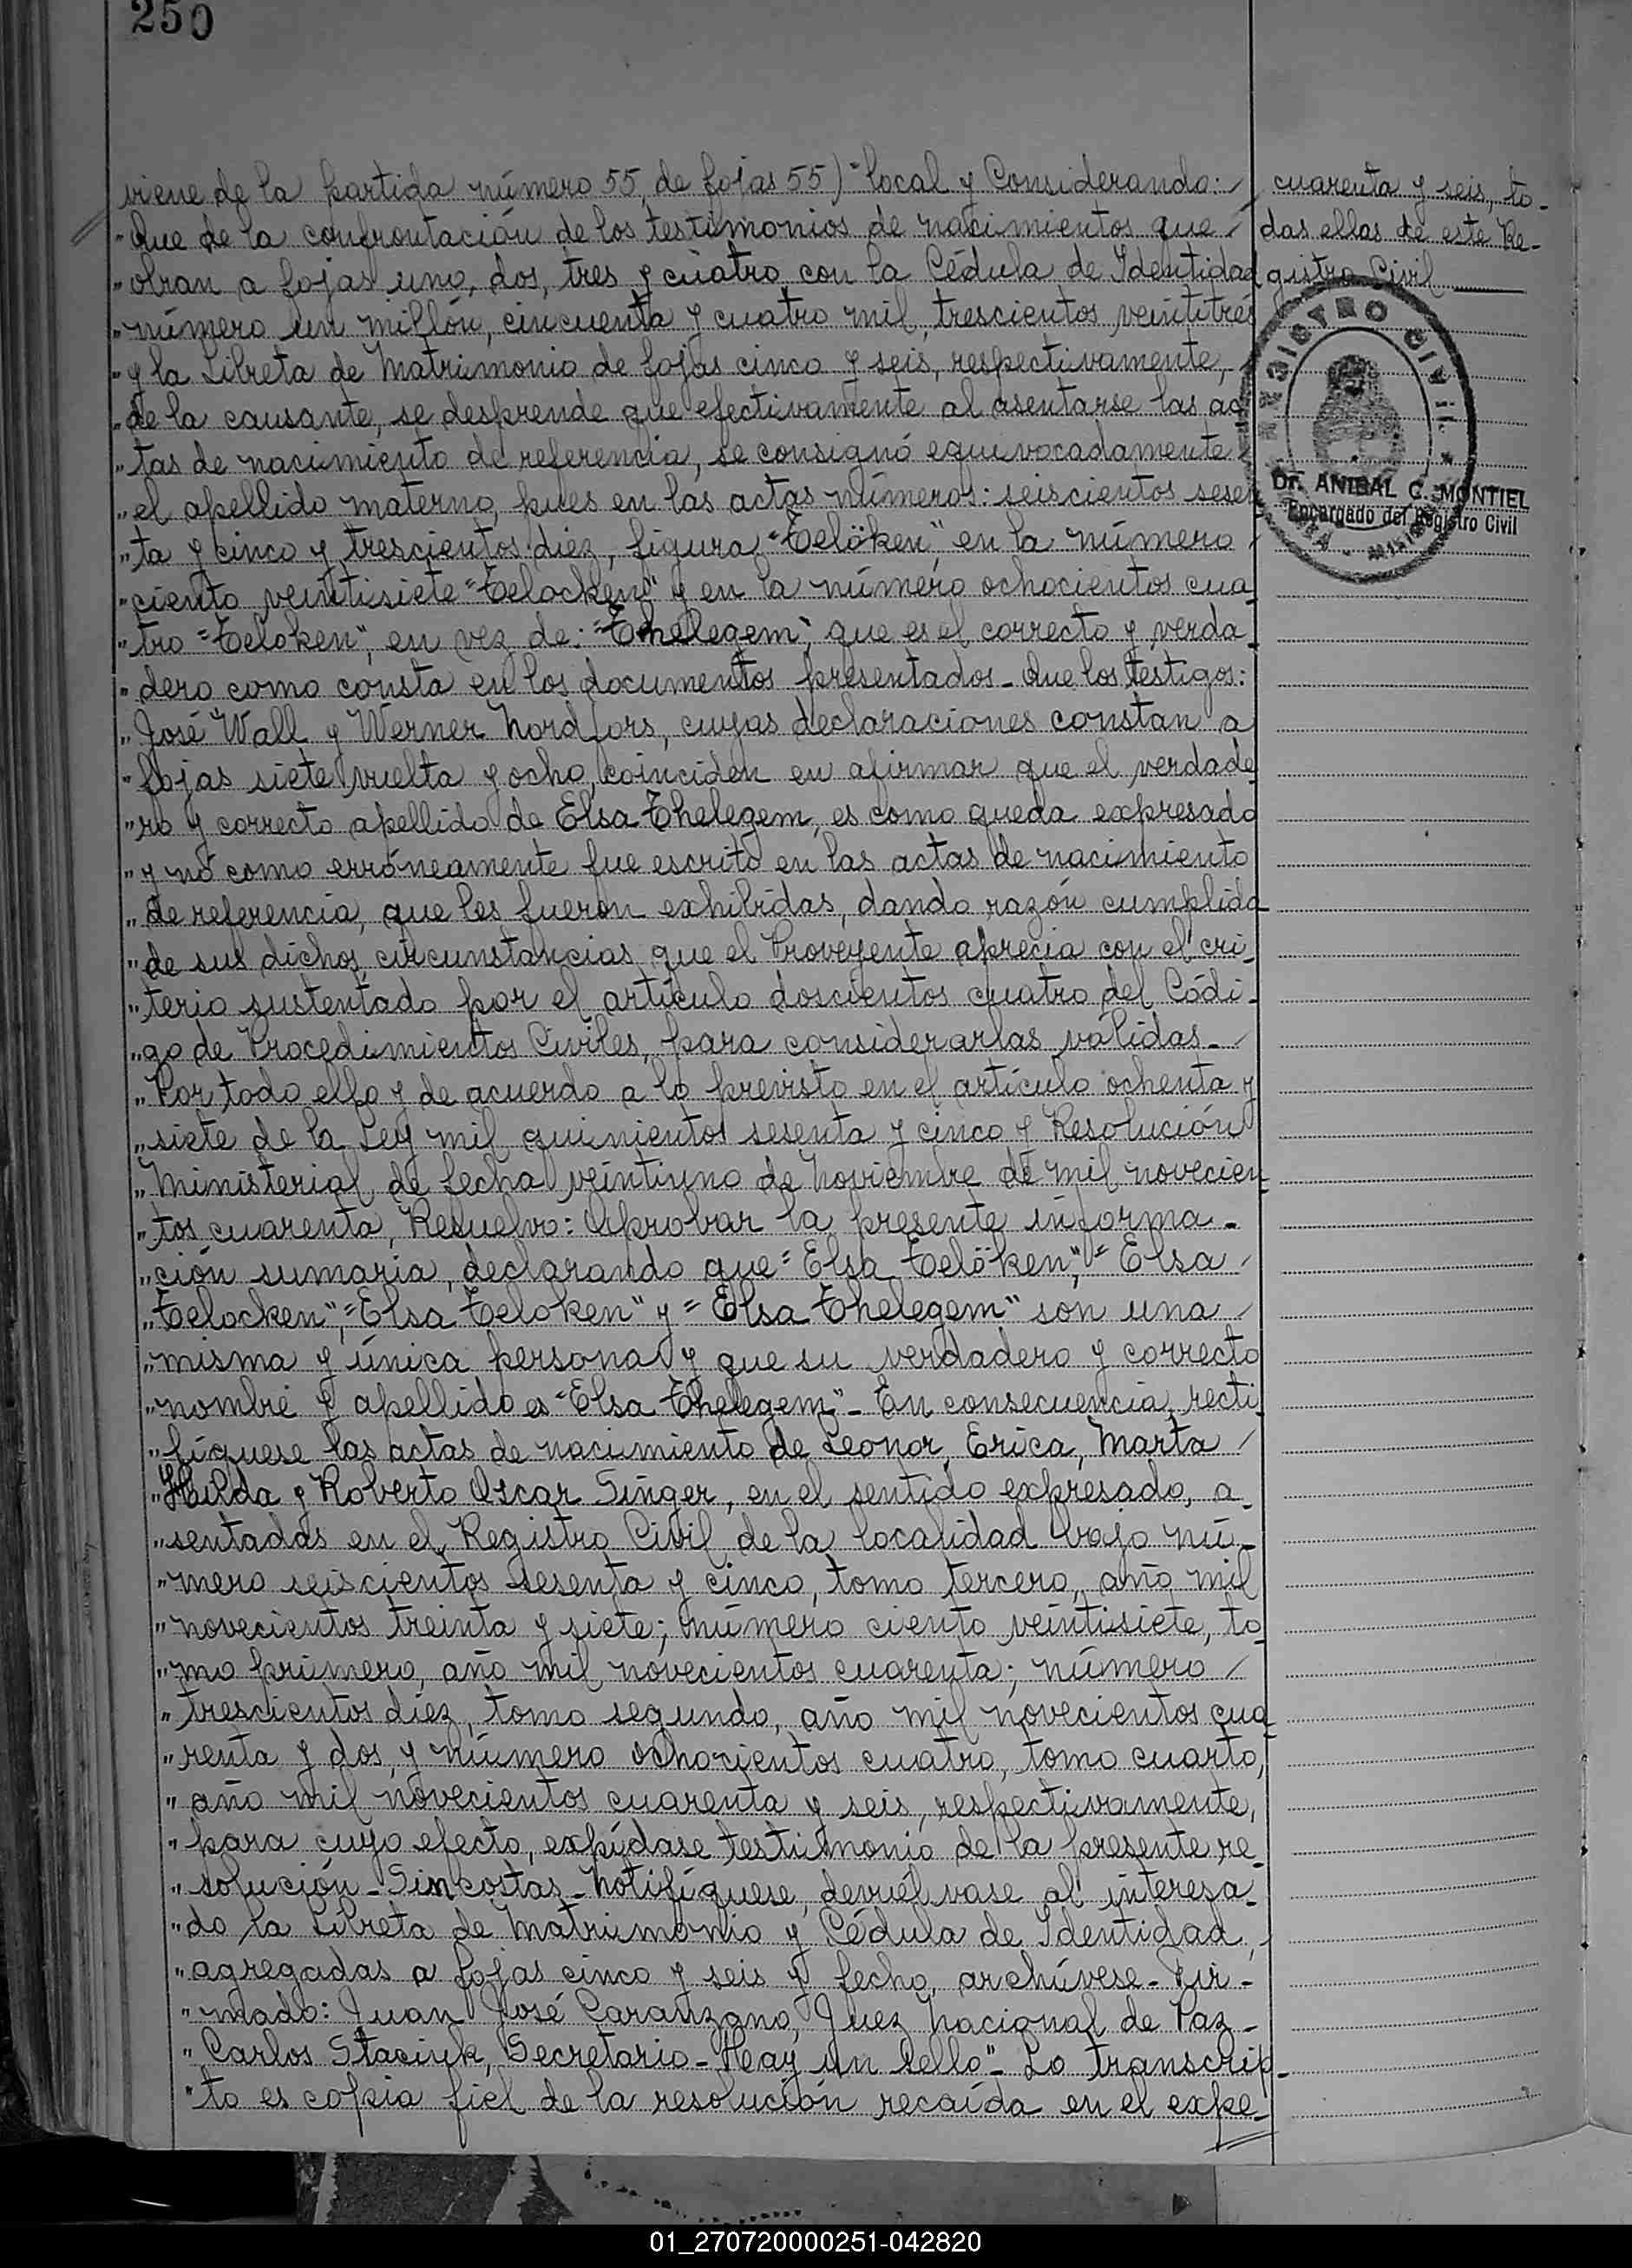 250
viene de la partida número 55, de fojas 55) "local y Considerando:
"Que de la confrontación de los testimonios de nacimientos que
"obran a fojas uno, dos, tres y cuatro con la Cédula de Identidad
"número un millón, cincuenta y cuatro mil, trescientos veintitrés
"y la Libreta de Matrimonio de fojas cinco y seis, respectivamente,
"de la causante, se desprende que efectivamente al asentarse las ac
"tas de nacimiento de referencia, se consignó equivocadamente
"el apellido materno, pues en las actas números: seiscientos sesen
"ta y cinco y trescientos diez, figura "Telöken" en la número
"ciento veintisiete "Telocken" y en la número ochocientos cua
"tro "Teloken", en vez de: "Thelegem", que es el correcto y verda
"dero como consta en los documentos presentados_ Que los testigos:
"José Wall y Werner Nordfors, cuyas declaraciones constan a
"fojas siete vuelta y ocho, coinciden en afirmar que el verdade
"ro y correcto apellido de Elsa Thelegem, es como queda expresado
"y no como erróneamente fue escrito en las actas de nacimiento
"de referencia, que les fueron exhibidas, dando razón cumplida
"de sus dichos, circunstancias que el Proveyente aprecia con el cri_
"terio sustentado por el artículo doscientos cuatro del Códi_
"go de Procedimientos Civiles, para considerarlas válidas_
"Por todo ello y de acuerdo a lo previsto en el artículo ochenta y
"siete de la Ley mil quinientos sesenta y cinco y Resolución
"Ministerial de fecha veintiuno de Noviembre de mil novecien_
"tos cuarenta, Resuelvo: Aprobar la presente informa_
"ción sumaria, declarando que "Elsa Telöken", "Elsa
"Telocken", "Elsa Teloken" y "Elsa Thelegem" son una
"misma y única persona y que su verdadero y correcto
"nombre y apellido es "Elsa Thelegem"_ En consecuencia, recti_
"fíquese las actas de nacimiento de Leonor, Erica, Marta
"Hilda y Roberto Oscar Singer, en el sentido expresado, a_
"sentadas en el Registro Civil de la localidad bajo nú_
"mero seiscientos sesenta y cinco, tomo tercero, año mil
"novecientos treinta y siete; número ciento veintisiete, to_
"mo primero, año mil novecientos cuarenta; número
"trescientos diez, tomo segundo, año mil novecientos cua_
"renta y dos, y número ochocientos cuatro, tomo cuarto,
"año mil novecientos cuarenta y seis, respectivamente,
"para cuyo efecto, expídase testimonio de la presente re_
"solución_ Sin costas_ Notifíquese, devuélvase al interesa_
"do la Libreta de Matrimonio y Cédula de Identidad,
"agregadas a fojas cinco y seis y fecho, archívese_ Fir_
"mado: Juan José Caranzano, Juez Nacional de Paz_
"Carlos Staciuk, Secretario_ Hay un sello"_ Lo transcrip_
"to es copia fiel de la resolución recaída en el expe_
cuarenta y seis, to_
das ellas de este Re_
gistro Civil
REGISTRO CIVIL
Dr. ANIBAL C. MONTIEL
Encargado del Registro Civil
01_270720000251-042820